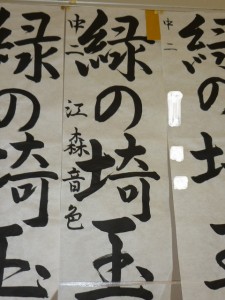 緑の埼玉
中二
緑の埼玉
中二 江森音色
緑の埼玉